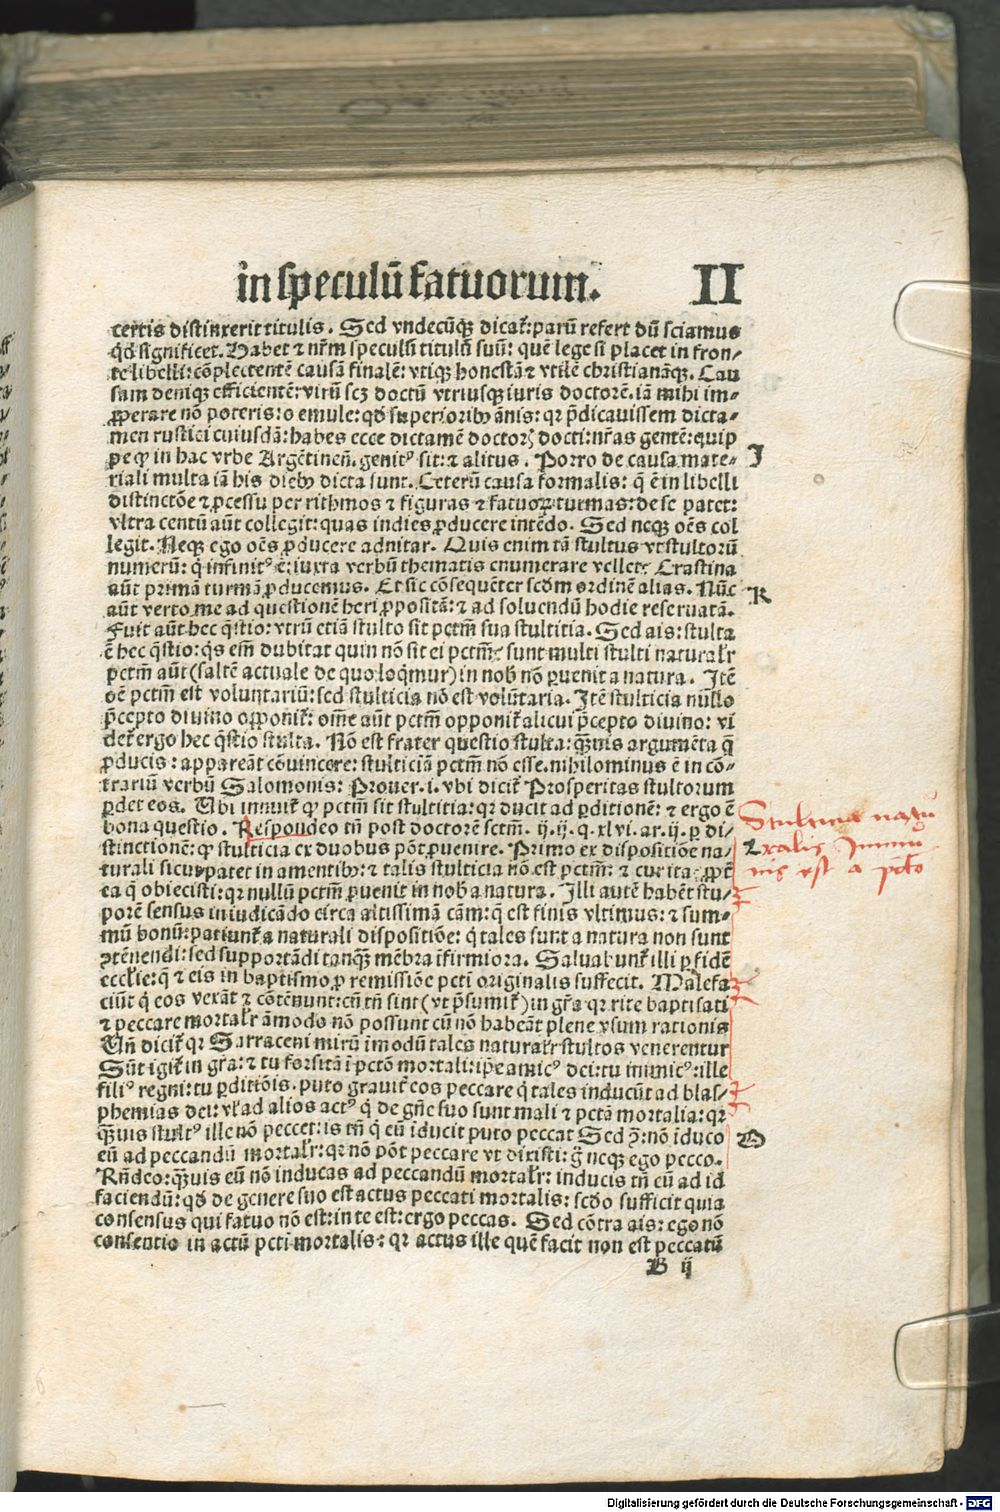 in speculū fatuorum. II
certis distinxerit titulis. Sed vndecūqꝫ dicat̄: parū refert dū sciamus
qd̄ significet. Habet ⁊ nr̄m speculū titulū suū: quē lege si placet in fron⸗
te libelli: cōplectentē causā finalē: vtiqꝫ honestā ⁊ vtilē christianāqꝫ. Cau
sam deniqꝫ efficientē: virū scꝫ doctū vtriusqꝫ iuris doctorē. iā mihi im⸗
ꝓperare nō poteris: o emule: qd̄ superioribꝰ ānis: qꝛ p̄dicauissem dicta⸗
men rustici cuiusdā: habes ecce dictamē doctorꝭ docti: nr̄as gentē: quip
pe qꝫ in hac vrbe Argētinen̄. genitꝰ sit: ⁊ alitus. Porro de causa mate⸗ I
riali multa iā his diebꝰ dicta sunt. Ceterū causa formalis: q̄ ē in libelli
distinctōe ⁊ ꝓcessu per rithmos ⁊ figuras ⁊ fatuoꝝ turmas: de se patet:
vltra centū aūt collegit: quas indies ꝓducere intēdo. Sed neqꝫ oēs col
legit. Neqꝫ ego oēs ꝓducere adnitar. Quis enim tā stultus vt stultorū
numerū: q̄ infinitꝰ ē: iuxta verbū thematis enumerare vellet: Crastina
aūt primā turmā ꝓducemus. Et sic cōsequēter scd̄m ordinē alias. Nūc
aūt verto me ad questionē heri ꝓpositā: ⁊ ad soluendū hodie reseruatā. K
Fuit aūt hec q̄stio: vtrū etiā stulto sit pctm̄ sua stultitia. Sed ais: stulta
ē hec q̄stio: q̄s em̄ dubitat quin nō sit ei pctm̄: sunt multi stulti naturalr̄
pctm̄ aūt (saltē actuale de quo loq̄mur) in nob̄ nō ꝑuenit a natura. Itē
oē pctm̄ est voluntariū: sed stulticia nō est volūtaria. Itē stulticia nullo
p̄cepto diuino opponit̄: om̄e aūt pctm̄ opponit̄ alicui p̄cepto diuino: vi
det̄ ergo hec q̄stio stulta. Nō est frater questio stulta: qꝫuis argumēta q̄
ꝓducis: appareāt cōuincere: stulticiā pctm̄ nō esse. nihilominus ē in cō⸗
trariū verbū Salomonis: Prouer. i. vbi dicit̄ Prosperitas stultorum
ꝑdet eos. Vbi innuit̄ ꝙ pctm̄ sit stultitia: qꝛ ducit ad ꝑditionē: ⁊ ergo ē
bona questio. Respondeo tn̄ post doctorē sctm̄. ij. ij. q. xlvi. ar. ij. ꝑ di⸗
stinctionē: ꝙ stulticia ex duobus pōt ꝓuenire. Primo ex dispositiōe na⸗
turali sicut patet in amentibꝰ: ⁊ talis stulticia nō est pctm̄: ⁊ cur ita: ꝓpt̄
ea q̄ obiecisti: qꝛ nullū pctm̄ ꝓuenit in nob̄ a natura. Illi autē habēt stu⸗
porē sensus in iudicādo circa altissimā cām: q̄ est finis vltimus: ⁊ sum⸗
mū bonū: patiunt̄ a naturali dispositiōe: q̄ tales sunt a natura non sunt
ꝯtēnendi: sed supportādi tanqꝫ mēbra ifirmiora. Saluabunt̄ illi ꝑ fidē
eccl̄ie: q̄ ⁊ eis in baptismo ꝓ remissiōe pcti originalis suffecit. Malefa
ciūt q̄ eos vexāt ⁊ cōtēnunt: cū tn̄ sint (vt p̄sumit̄) in gr̄a qꝛ rite baptisati
⁊ peccare mortalr̄ āmodo nō possunt cū nō habeāt plene vsum rationis
Vn̄ dicit̄ qꝛ Sarraceni mirū imodū tales naturalr̄ stultos venerentur
Sūt igit̄ in gr̄a: ⁊ tu forsitā ī pctō mortali: ip̄e amicꝰ dei: tu inimicꝰ: ille
filiꝰ regni: tu ꝑditiōis. puto grauit̄ eos peccare q̄ tales inducūt ad blas⸗
phemias dei: vl̄ ad alios actꝰ q̄ de gn̄e suo sunt mali ⁊ pctā mortalia: qꝛ
qꝫuis stultꝰ ille nō peccet: is tn̄ q̄ eū īducit puto peccat Sed ꝓ: nō īduco O
eū ad peccandū mortalr̄: qꝛ nō pōt peccare vt dixisti: g̊ neqꝫ ego pecco.
Rn̄deo: qꝫuis eū nō inducas ad peccandū mortalr̄: inducis tn̄ eū ad id
faciendū: qd̄ de genere suo est actus peccati mortalis: scd̄o sufficit quia
consensus qui fatuo nō est: in te est: ergo peccas. Sed cōtra ais: ego nō
consentio in actū pcti mortalis: qꝛ actus ille quē facit non est peccatū
B ij
Stulticia natu
ralis Immu
nis est a pctō
Digitalisierung gefördert durch die Deutsche Forschungsgemeinschaft - DFG